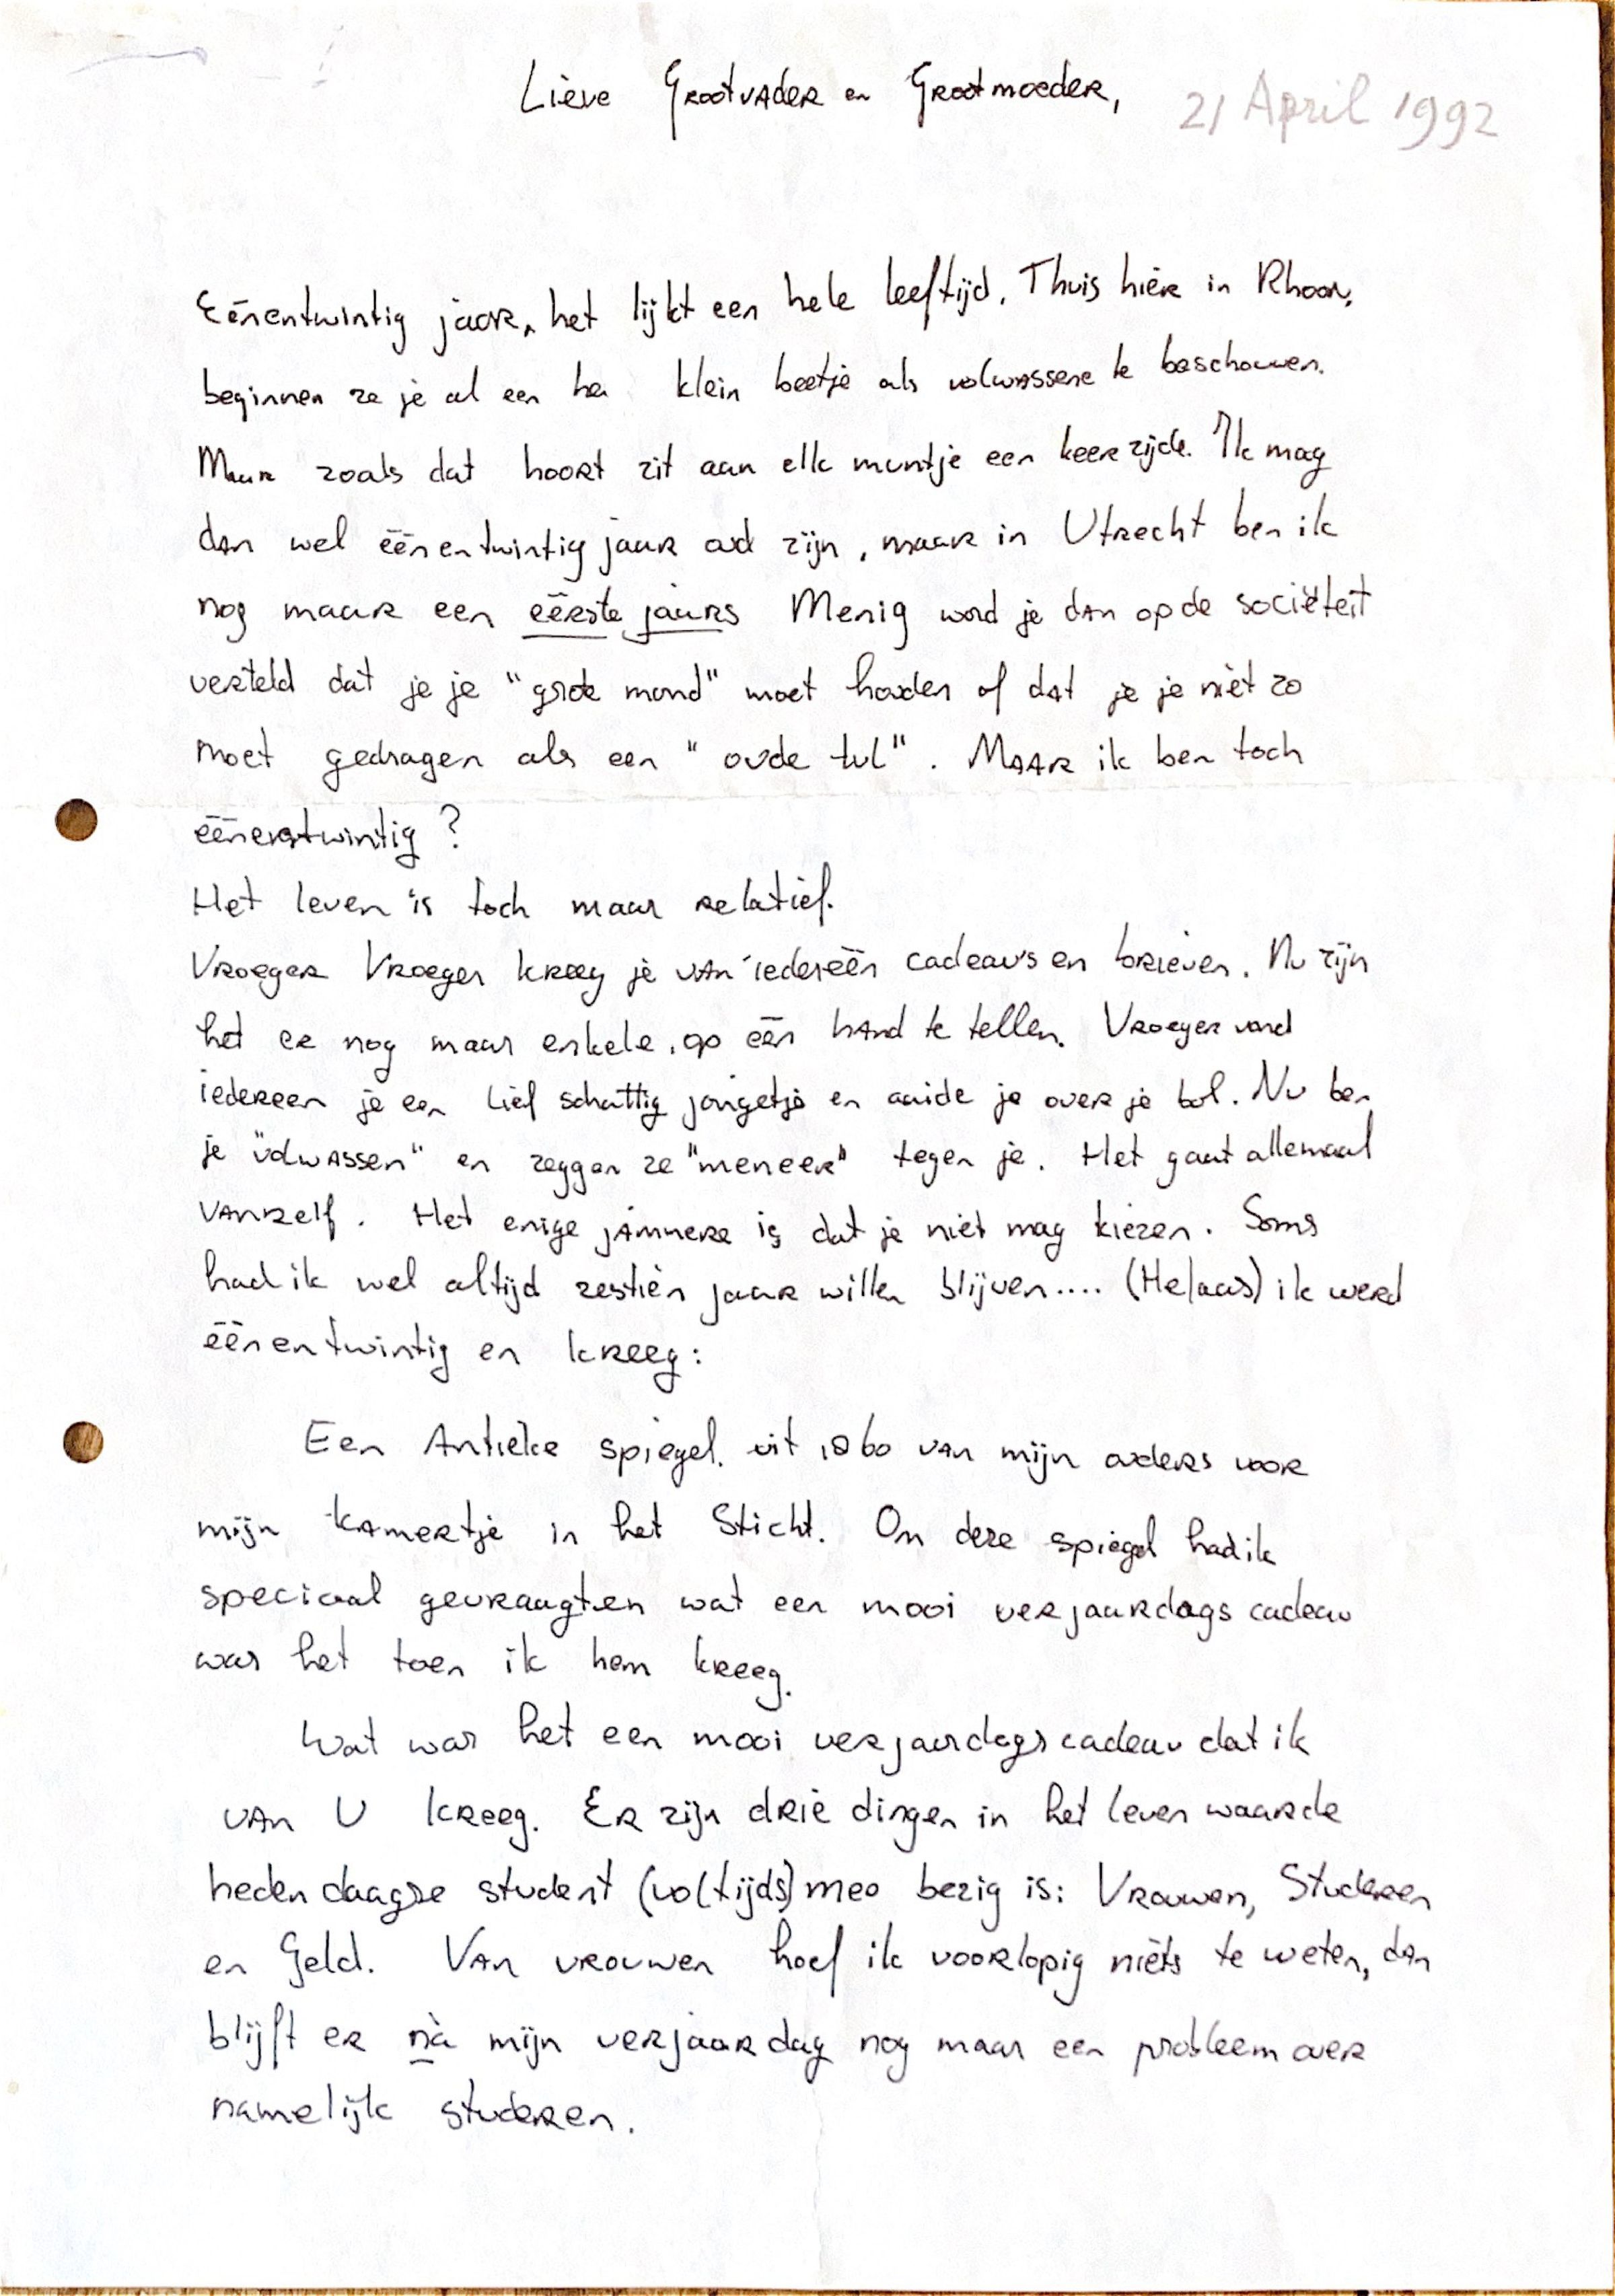 Lieve Grootvader en Grootmoeder,
21 April 1992
Eénentwintig jaar, het lijkt een hele leeftijd. Thuis hier in Rhoon,
beginnen ze je al een hee klein beetje als volwassene te beschouwen.
Maar zoals dat hoort zit aan elk muntje een keerzijde. Ik mag
dan wel éénentwintig jaar oud zijn, maar in Utrecht ben ik
nog maar een eerste jaars Menig word je dan op de sociëteit
verteld dat je je "grote mond" moet houden of dat je je niet zo
moet gedragen als een "oude lul". Maar ik ben toch
éénentwintig?
Het leven is toch maar relatief.
Vroeger Vroeger kreeg je van iedereén cadeaus en brieven. Nu zijn
het er nog maar enkele, op één hand te tellen. Vroeger vond
iedereen je een lief schattig jongetje en aaide je over je bol. Nu ben
je "volwassen" en zeggen ze "meneer" tegen je. Het gaat allemaal
vanzelf. Het enige jammere is dat je niet mag kiezen. Soms
had ik wel altijd zestien jaar willen blijven.... (Helaas) ik werd
éénentwintig en kreeg:
Een Antieke spiegel uit 1860 van mijn ouders voor
mijn kamertje in het Sticht. Om deze spiegel had ik
speciaal gevraagt en wat een mooi verjaardags cadeau
was het toen ik hem kreeg.
Wat was het een mooi verjaardags cadeau dat ik
van U kreeg. Er zijn drie dingen in het leven waar de
hedendaagse student (voltijds) mee bezig is: Vrouwen, Studeren
en Geld. Van vrouwen hoef ik voorlopig niets te weten, dan
blijft er nà mijn verjaardag nog maar een probleem over
namelijk studeren.